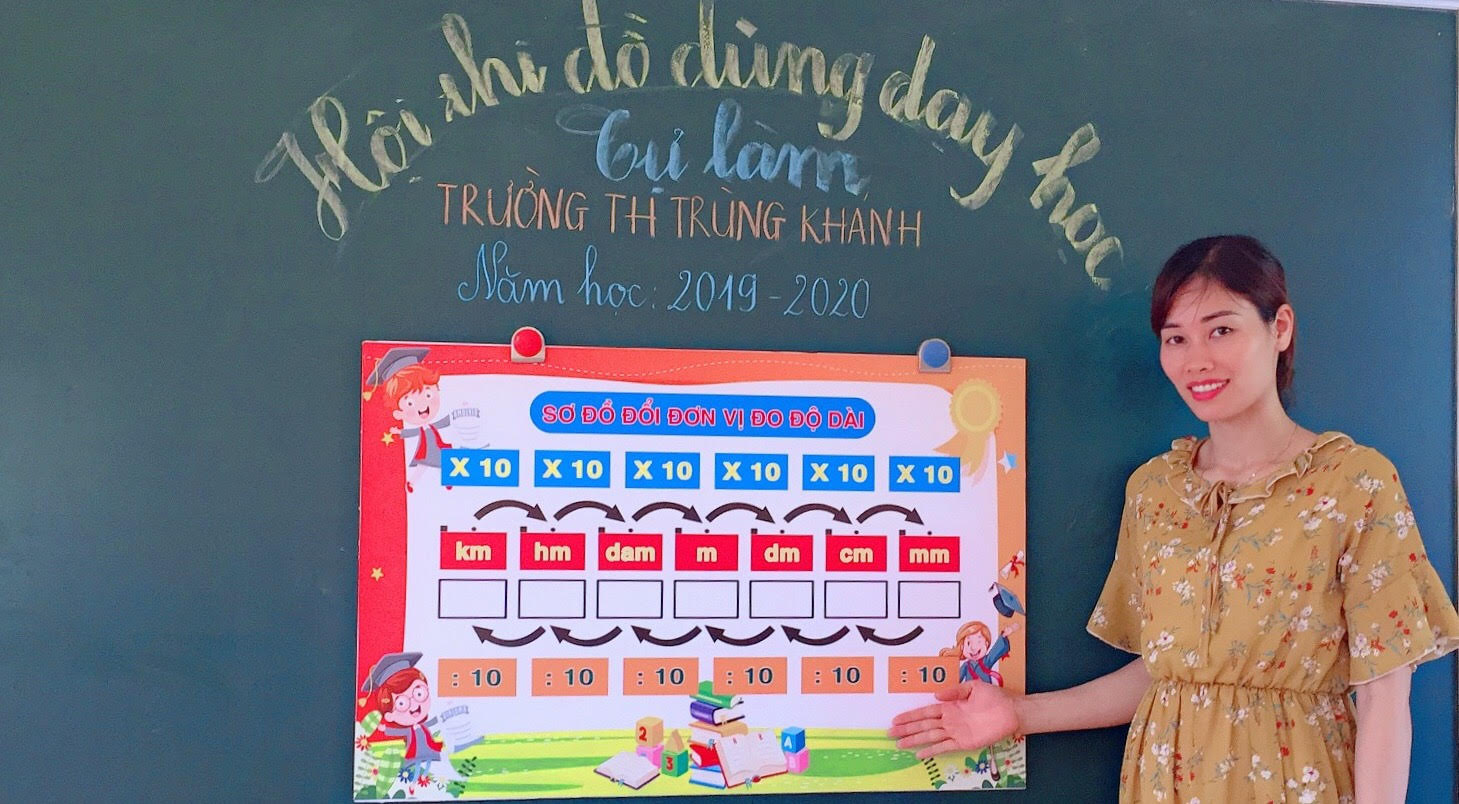 Hội thi đồ dùng dạy học
Tự làm
TRƯỜNG TH TRÙNG KHÁNH
Năm học: 2019 - 2020
SƠ ĐỒ ĐỔI ĐƠN VỊ ĐO ĐỘ DÀI
X 10 X 10 X 10 X 10 X 10 X 10
km hm dam m dm cm mm
: 10 : 10 : 10 : 10 : 10 : 10
2 3 A